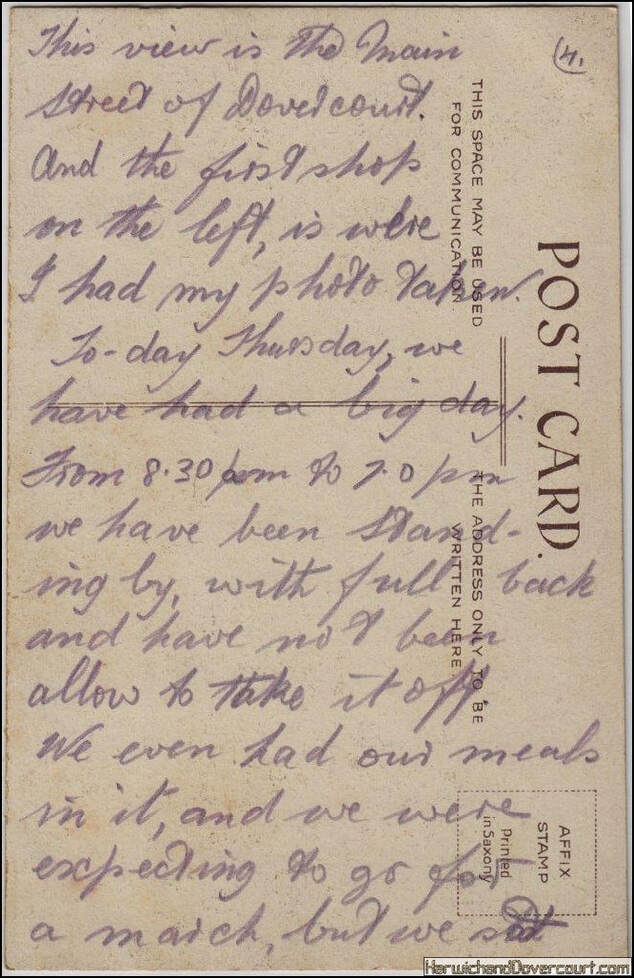 (4.
This view is the main
street of Dovercourt.
And the first shop
on the left, is were
I had my photo taken.
To-day Thursday, we
have had a big day.
From 8.30 pm to 7.0 pm
we have been stand-
ing by, with full back
and have not been
allow to take it off.
We even had our meals
in it, and we were
expecting to go for
a march, but we
POST CARD.
THIS SPACE MAY BE USED
FOR COMMUNICATION.
THE ADDRESS ONLY TO BE
WRITTEN HERE
AFFIX
STAMP
Printed
in Saxony
HarwichandDovercourt.com